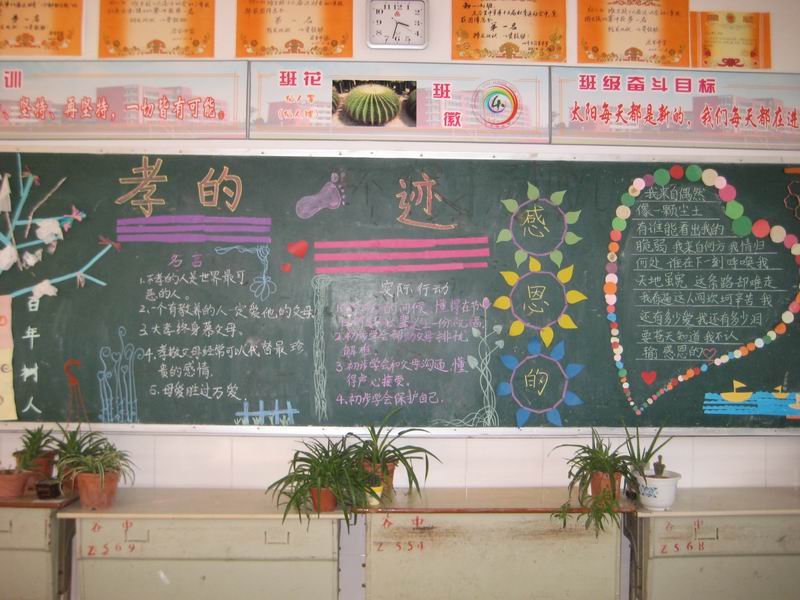 第一名
第一名
第一名
训
、坚持、再坚持，一切皆有可能。
班花
仙人掌
班徽
4
班级奋斗目标
太阳每天都是新的，我们每天都在进
孝的
迹
感
恩
的
名言
1.不孝的人是世界最可
恶的人。
2.一个有教养的人一定爱他的父母
3.大孝终身慕父母。
4.孝敬父母经常可以代替最珍
贵的感情。
5.母爱胜过万爱
实际行动
懂得在节
2.初步学会帮助父母排忧
解难
3.初步学会和父母沟通,懂
得声心接受。
4.初步学会保护自己.
我来自偶然
像一颗尘土
有谁能看出我的
脆弱 我来自何方我情归
何处 谁在下一刻呼唤我
天地虽宽 这条路却难走
我看遍这人间坎坷辛苦 我
还有多少爱 我还有多少泪
要苍天知道 我不认
输 感恩的
百年树人
谷中
2569
谷中
2554
谷中
2568